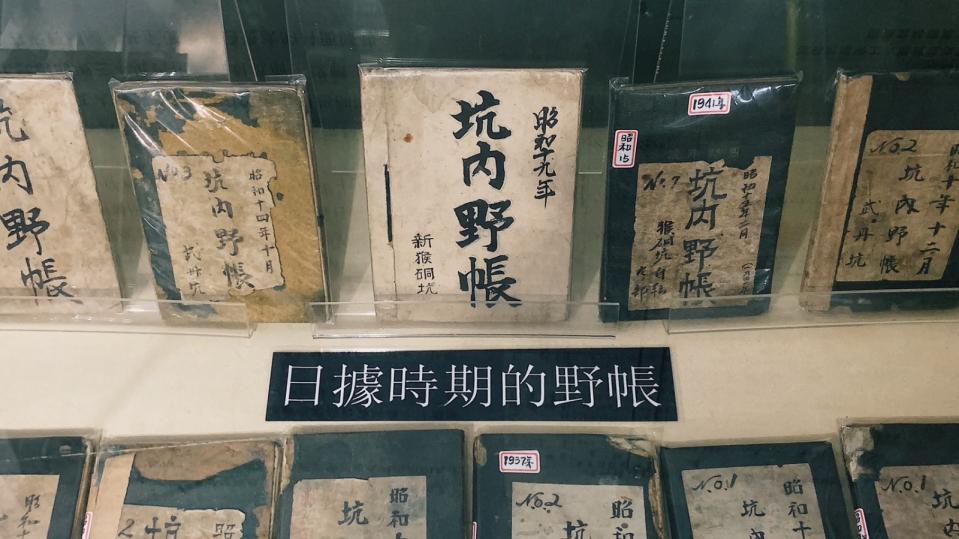 坑內野帳
No3
昭和十四年十月
坑內野帳
武丹坑
昭和十九年
坑內野帳
新猴硐坑
1941年
昭和15
No.7
坑內野帳
猴硐坑
No2
十年十二月
坑內野帳
武丹坑
日據時期的野帳
昭和
坑
昭和
1937年
No.2
昭和
坑
No.1
昭和十
坑內
No.1
坑